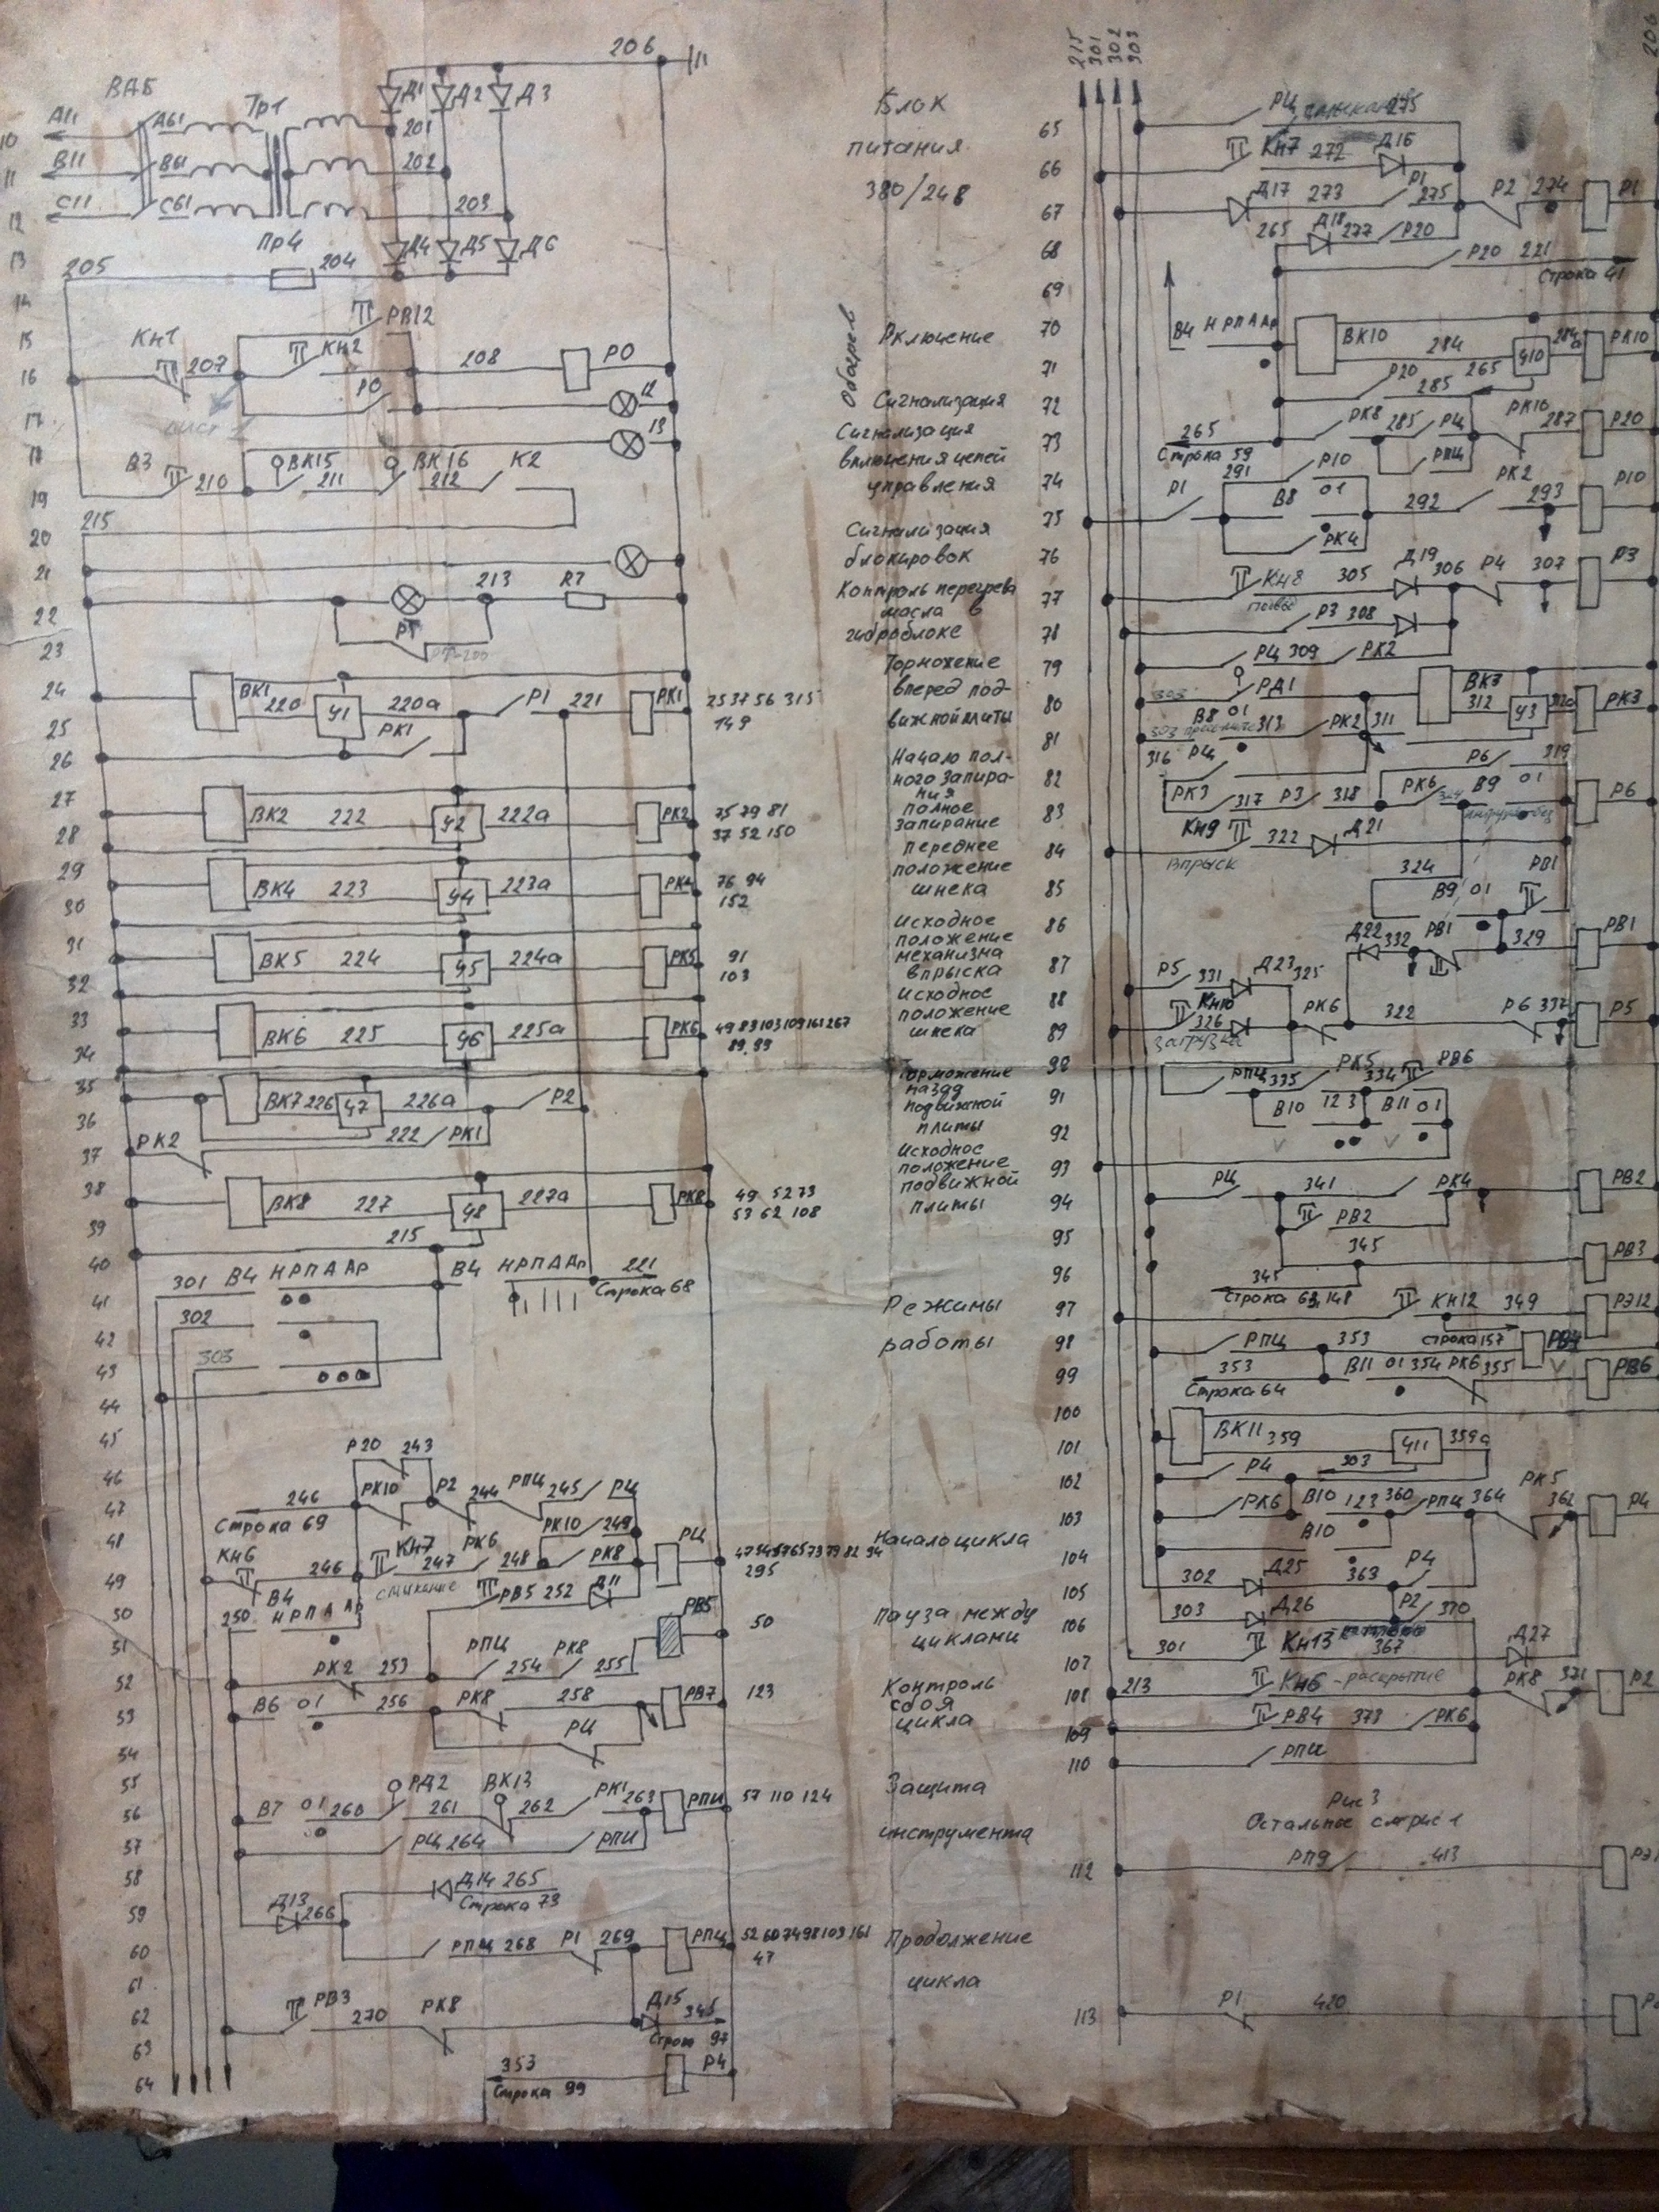 206
ВАБ
А11 А61 Тр1 Д1 Д2 Д3
10 201
В11 В61 202
11
С11 С61 203
12 Пр4 Д4 Д5 Д6
13 205 204
14
15 Кн1 РВ12
207 Кн2 208 РО
16 РО 12
17 13
18 В3 ВК15 ВК16 К2
19 210 211 212
215
20
21 213 R7
22 РТ
23
24 ВК1 220 Ч1 220а Р1 221 РК1 25 37 56 315
149
25 РК1
26
27 ВК2 222 Ч2 222а РК2 75 79 81
28 37 52 150
29 ВК4 223 Ч4 223а РК4 76 94
30 152
31 ВК5 224 Ч5 224а РК5 91
32 103
33 ВК6 225 Ч6 225а РК6 49 83 103 109 161 267
34 89,99
35 ВК7 226 Ч7 226а Р2
36 222 РК1
37 РК2
38 ВК8 227 Ч8 227а РК8 49 52 73
53 62 108
39 215
40 301 В4 НРПААр В4 НРПААр 221
41 Строка 68
302
42
43 303
44
45 Р20 243
46 246 РК10 Р2 244 РПЦ 245 РЦ
47 Строка 69
48 Кн6 246 Кн7 РК6 РК10 249 РЦ
49 В4 247 248 РК8 295
смыкание
50 250 НРПААр РВ5 252 Д11 РВ5 50
51 РПЦ РК8
52 РК2 253 254 255
53 В6 01 256 РК8 258 РВ7 123
54 РЦ
55 РД2 ВК13
56 В7 01 260 261 262 РК1 263 РПИ 57 110 124
57 РЦ 264 РПИ
58 Д14 265
Строка 73
59 Д13 266
60 РПЦ 268 Р1 269 РПЦ 52 60 74 98 103 161
47
61
62 РВ3 270 РК8 Д15 345
Строка 97
63
64 353 Р4
Строка 99
Блок
питания
380/248
Обогрев
Включение
Сигнализация
Сигнализация
включения цепей
управления
Сигнализация
блокировок
Контроль перегрева
масла в
гидроблоке
Торможение
вперед под-
вижной плиты
Начало пол-
ного запира-
ния
полное
запирание
переднее
положение
шнека
Исходное
положение
механизма
впрыска
Исходное
положение
шнека
Торможение
назад
подвижной
плиты
Исходное
положение
подвижной
плиты
Режимы
работы
Начало цикла
Пауза между
циклами
Контроль
сбоя
цикла
Защита
инструмента
Продолжение
цикла
215 301 302 303 206
65 РЦ 275
66 Кн7 272 Д16
67 Д17 273 Р1 275 Р2 274 Р1
68 265 Д18 277 Р20
69 Р20 221
Строка 41
70 В4 НРПААр ВК10 284 Ч10 РК10
71 Р20 265
72 285
73 265 РК8 285 РЦ РК10 287 Р20
Строка 59
РПЦ
74 291 Р10 РК2
75 Р1 В8 01 292 293 Р10
76 РК4
Д19
77 Кн8 305 306 Р4 307 Р3
78 Р3 308
79 РЦ 309 РК2
80 303 РД1 ВК3 312 Ч3 РК3
81 В8 01 313 РК2 311
82 316 РЦ Р6 319
83 РК3 317 Р3 318 РК6 В9 01 Р6
84 Кн9 322 Д21
Впрыск
85 324 РВ1
86 В9 01
87 Д22 332 РВ1 329 РВ1
88 Р5 331 Д23 325
89 Кн10 326 РК6 322 Р6 337 Р5
загрузка
90 РПЦ 335 РК5 334 РВ6
91 В10 123 В11 01
92
93
94 РЦ 341 РК4 РВ2
РВ2
95 345 РВ3
96 345
Строка 63,148
97 Кн12 349 РЭ12
98 РПЦ 353 строка 157 РВ4
99 353 В11 01 354 РК6 355 РВ6
Строка 64
100 ВК11 359 Ч11 359а
101
102 Р4 303 РК5
103 РК6 В10 123 360 РПЦ 364 Р4
104 В10
105 302 Д25 363 Р4
106 303 Д26 Р2 370
107 301 Кн13 367 Д27
108 213 Кн6 - раскрытие РК8 371 Р2
109 РВ4 373 РК6
110 РПИ
Рис 3
Остальное см рис 1
112 РП9 413
113 Р1 420